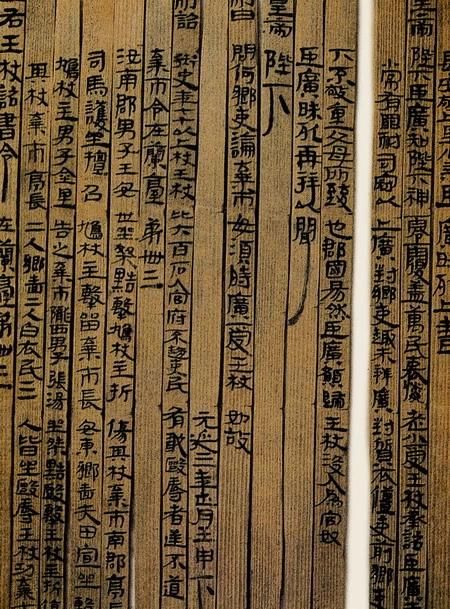 陛下臣廣知陛下神零覆蓋萬民哀憐老小受王杖承詔臣廣未
常有罪耐司寇以上廣對鄉吏趣未辨廣對質衣僵吏前鄉吏
下不敬重父母所致也郡國易然臣廣願歸王杖沒入為官奴
臣廣昧死再拜以聞
皇帝陛下
制曰問何鄉吏論棄市毋須時廣受王杖如故
元延三年正月壬申下
制詔御史年七十以上杖王杖比六百石入官府不趨吏民有敢毆辱者逆不道
棄市令在蘭臺第卌三
汝南郡男子王安世坐桀黠擊鳩杖主折傷其杖棄市南郡亭長
司馬護坐擅召鳩杖主擊留棄市長安東鄉嗇夫田宣坐擊
鳩杖主男子金里告之棄市隴西男子張湯坐桀黠毆擊王杖主折傷
其杖棄市亭長二人鄉嗇二人白衣民三人皆坐毆辱王杖功棄市
右王杖詔書令在蘭臺第卌三